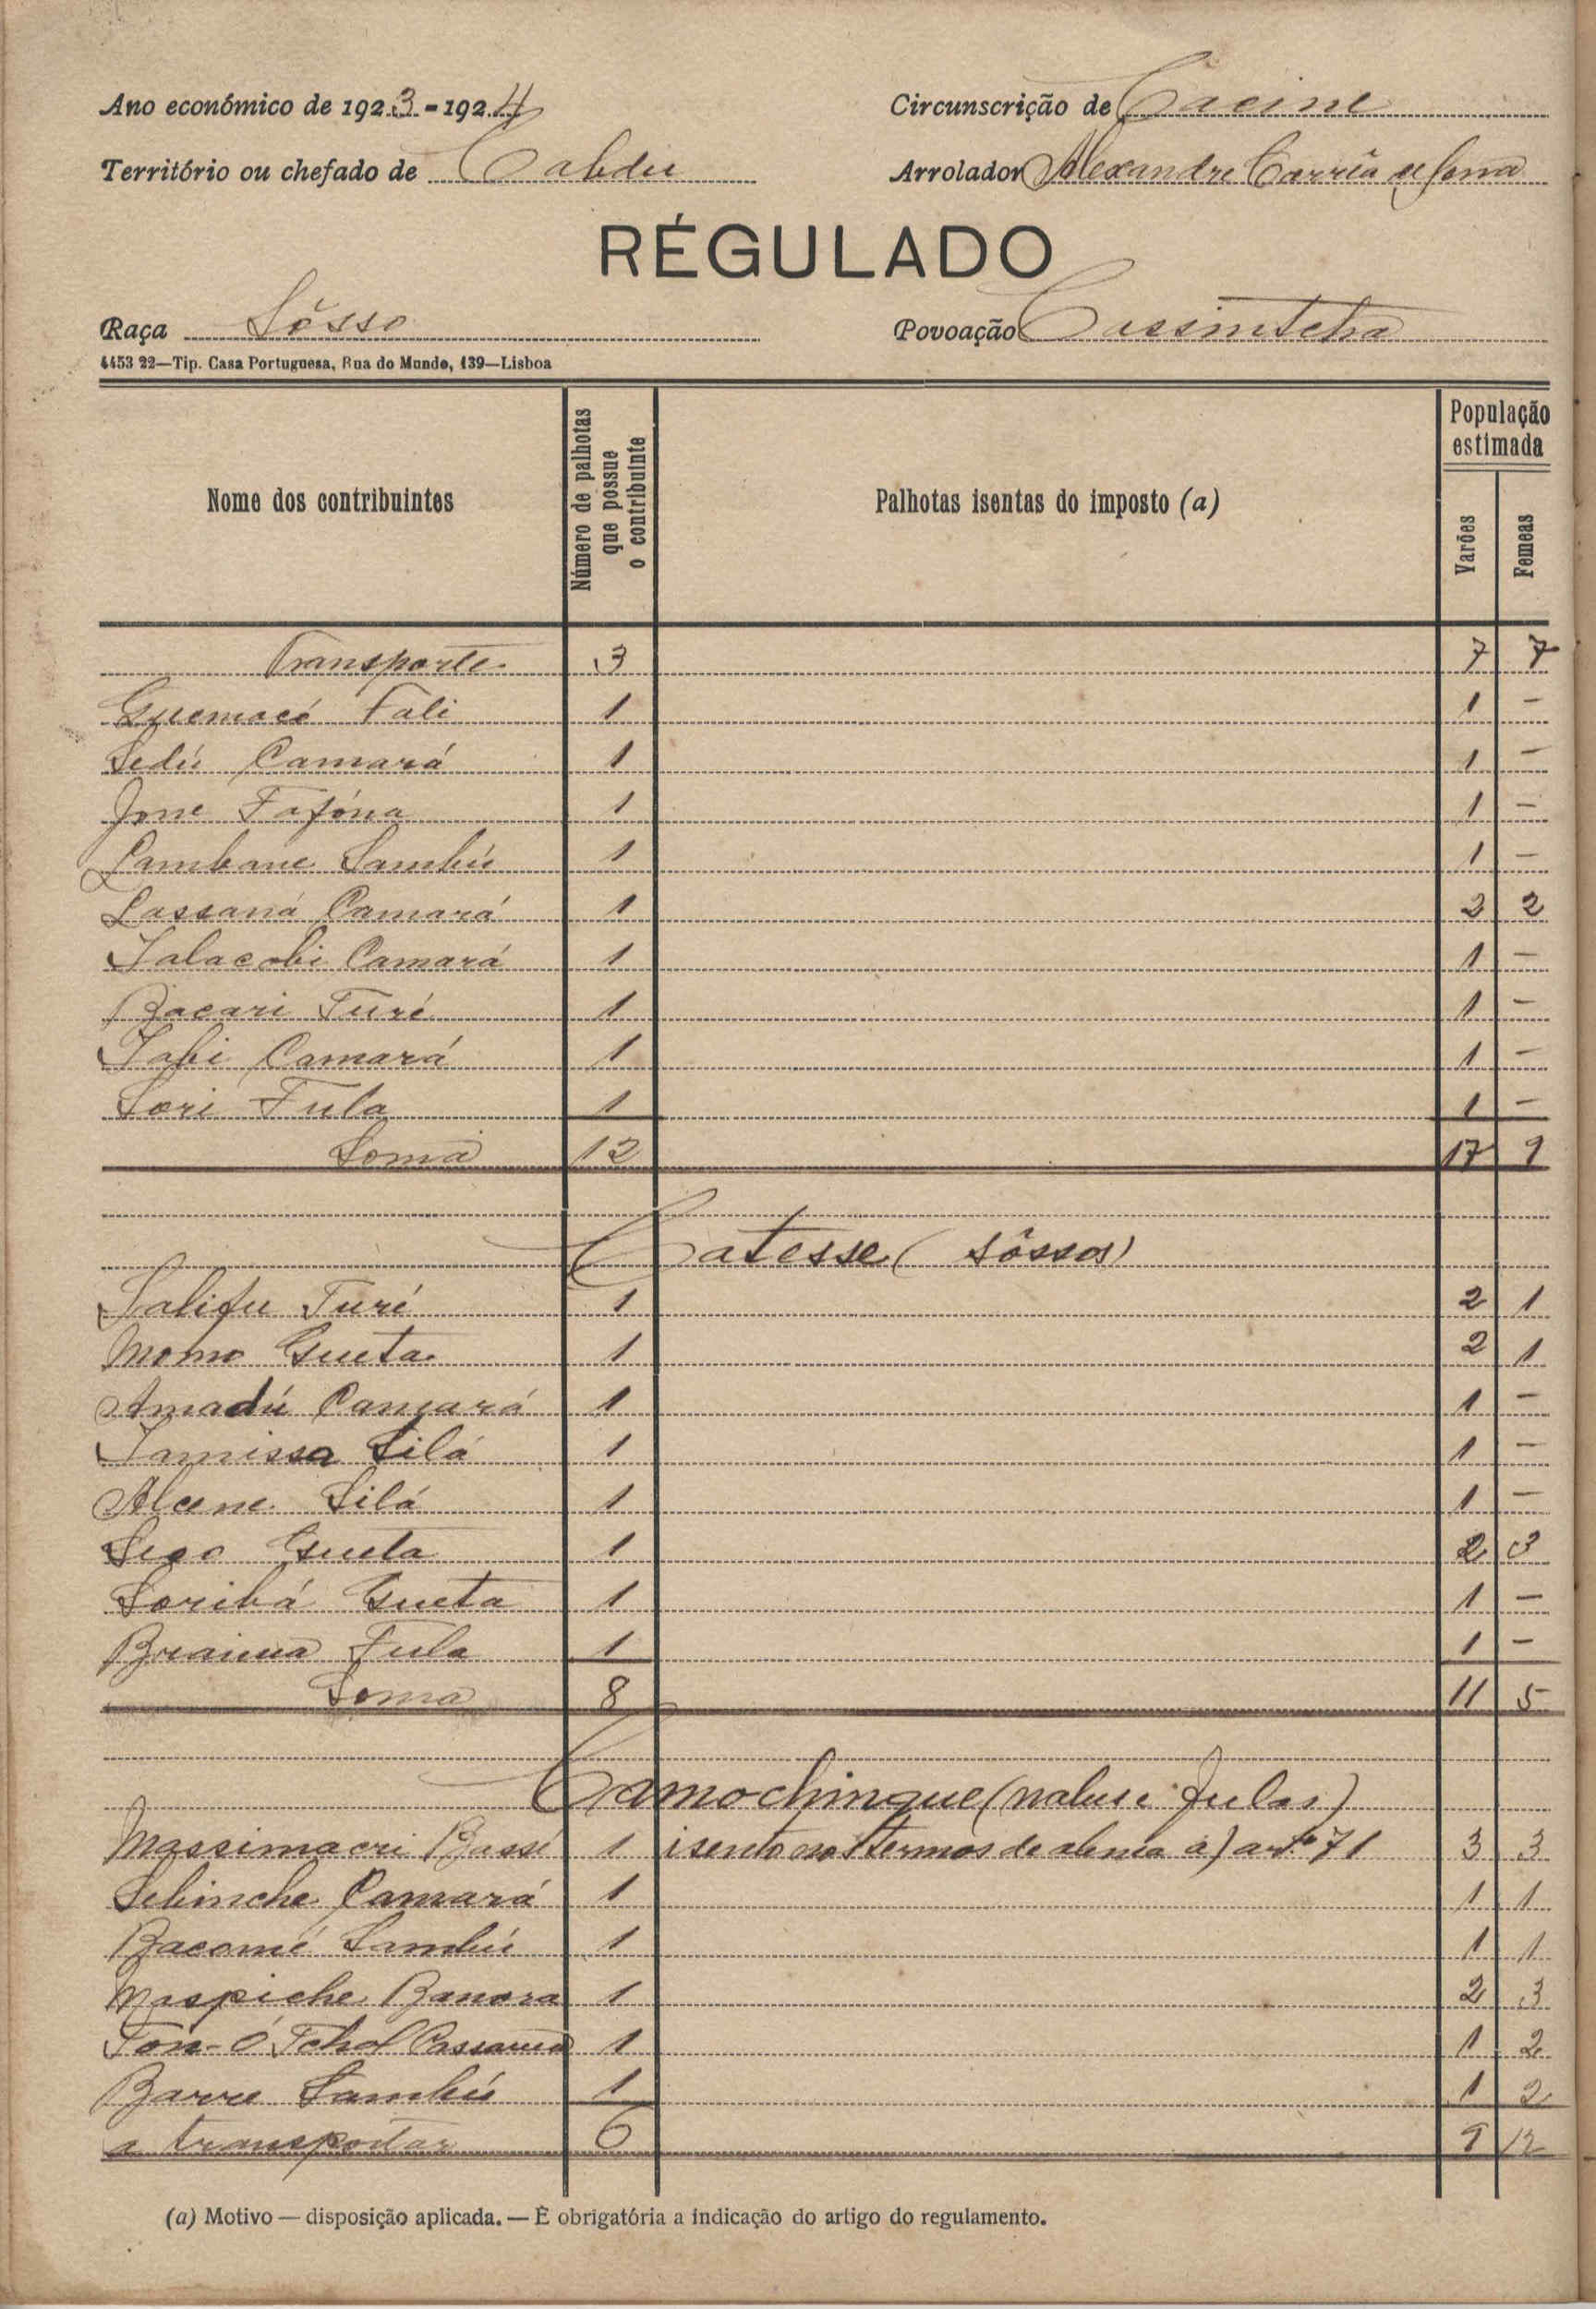 Ano económico de 1923-1924 Circunscrição de Cacine
Território ou chefado de Cabdu Arrolador Alexandre Corrêa de Sena
RÉGULADO
Raça Sôsso Povoação Cassintcha
4453 22—Tip. Casa Portuguesa, Rua do Mundo, 139—Lisboa
Nome dos contribuintes Número de palhotas que possue o contribuinte Palhotas isentas do imposto (a) População estimada Varões Femeas
Transporte 3 7 7
Guemacé Fali 1 1 -
Sedú Camará 1 1 -
Jone Fafóna 1 1 -
Lambane Sambú 1 1 -
Lassaná Camará 1 2 2
Salacobi Camará 1 1 -
Bacari Turé 1 1 -
Sabi Camará 1 1 -
Sori Fula 1 1 -
Soma 12 17 9
Catesse (sôssos)
Salifu Turé 1 2 1
Momo Gueta 1 2 1
Amadú Camará 1 1 -
Lamissa Silá 1 1 -
Alcene Silá 1 1 -
Gueta 1 2 3
Soribá Gueta 1 1 -
Braima Fula 1 1 -
Soma 8 11 5
Camochinque (nalus e fulas)
Massimacri Bassi 1 isento nos termos de alenia a) artº 71 3 3
Sebinche Camará 1 1 1
Bacomé Sambú 1 1 1
Maspiche Banora 1 2 3
Ton-Ó Tchol Cassamá 1 1 2
Barre Sambú 1 1 2
a transportar 6 9 12
(a) Motivo — disposição aplicada. — É obrigatória a indicação do artigo do regulamento.